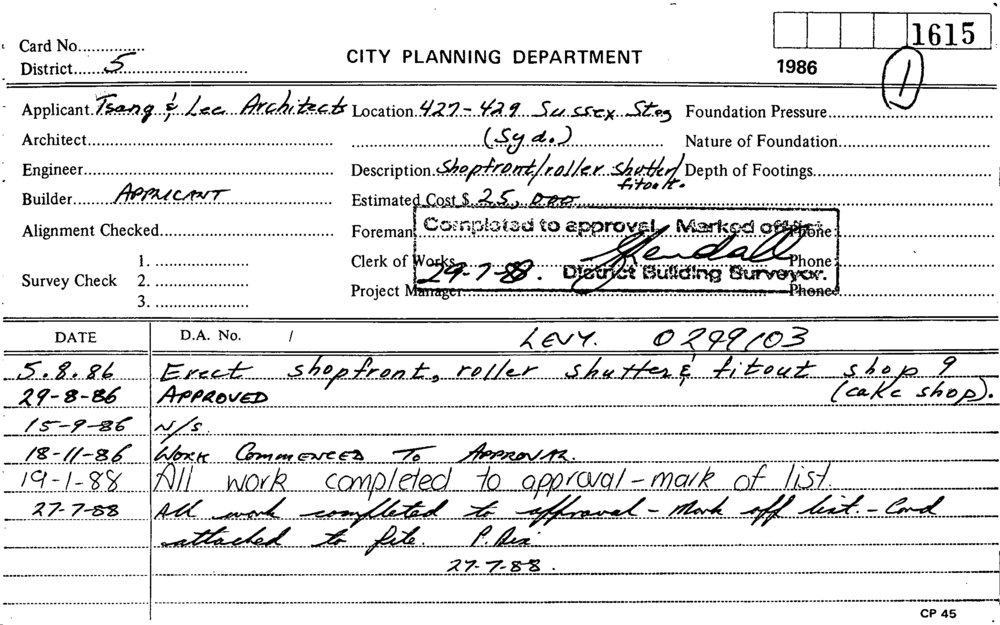 Card No...............
1615
CITY PLANNING DEPARTMENT
District......5..............................
1986
1
Applicant Tsang & Lee Architects Location 427-429 Sussex St Foundation Pressure
Architect (Syd.) Nature of Foundation
Engineer Description Shopfront/roller shutter/ Depth of Footings
fitout.
Builder APPLICANT Estimated Cost $ 25,000
Alignment Checked Foreman Phone
Completed to approval. Marked off list
Survey Check 1. Clerk of Works Phone
29-7-88. District Building Surveyor.
2.
Project Manager Phone
3.
DATE D.A. No. / LEVY. 0299103
5.8.86 Erect shopfront, roller shutter & fitout shop 9
29-8-86 APPROVED (cake shop).
15-9-86 N/S.
18-11-86 WORK COMMENCED TO APPROVAL.
19-1-88 All work completed to approval - mark of list.
27-7-88 All work completed to approval - Mark off list. - Card
attached to file. P. Dix
27-7-88.
CP 45